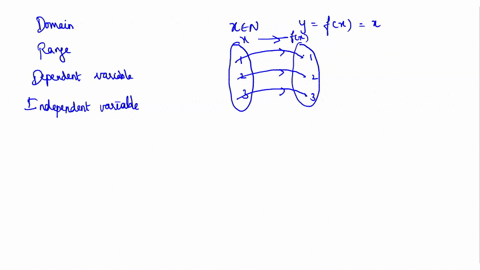 Domain
Range
Dependent variable
Independent variable
x∈N y = f(x) = x
x → f(x)
1 1
2 2
3 3